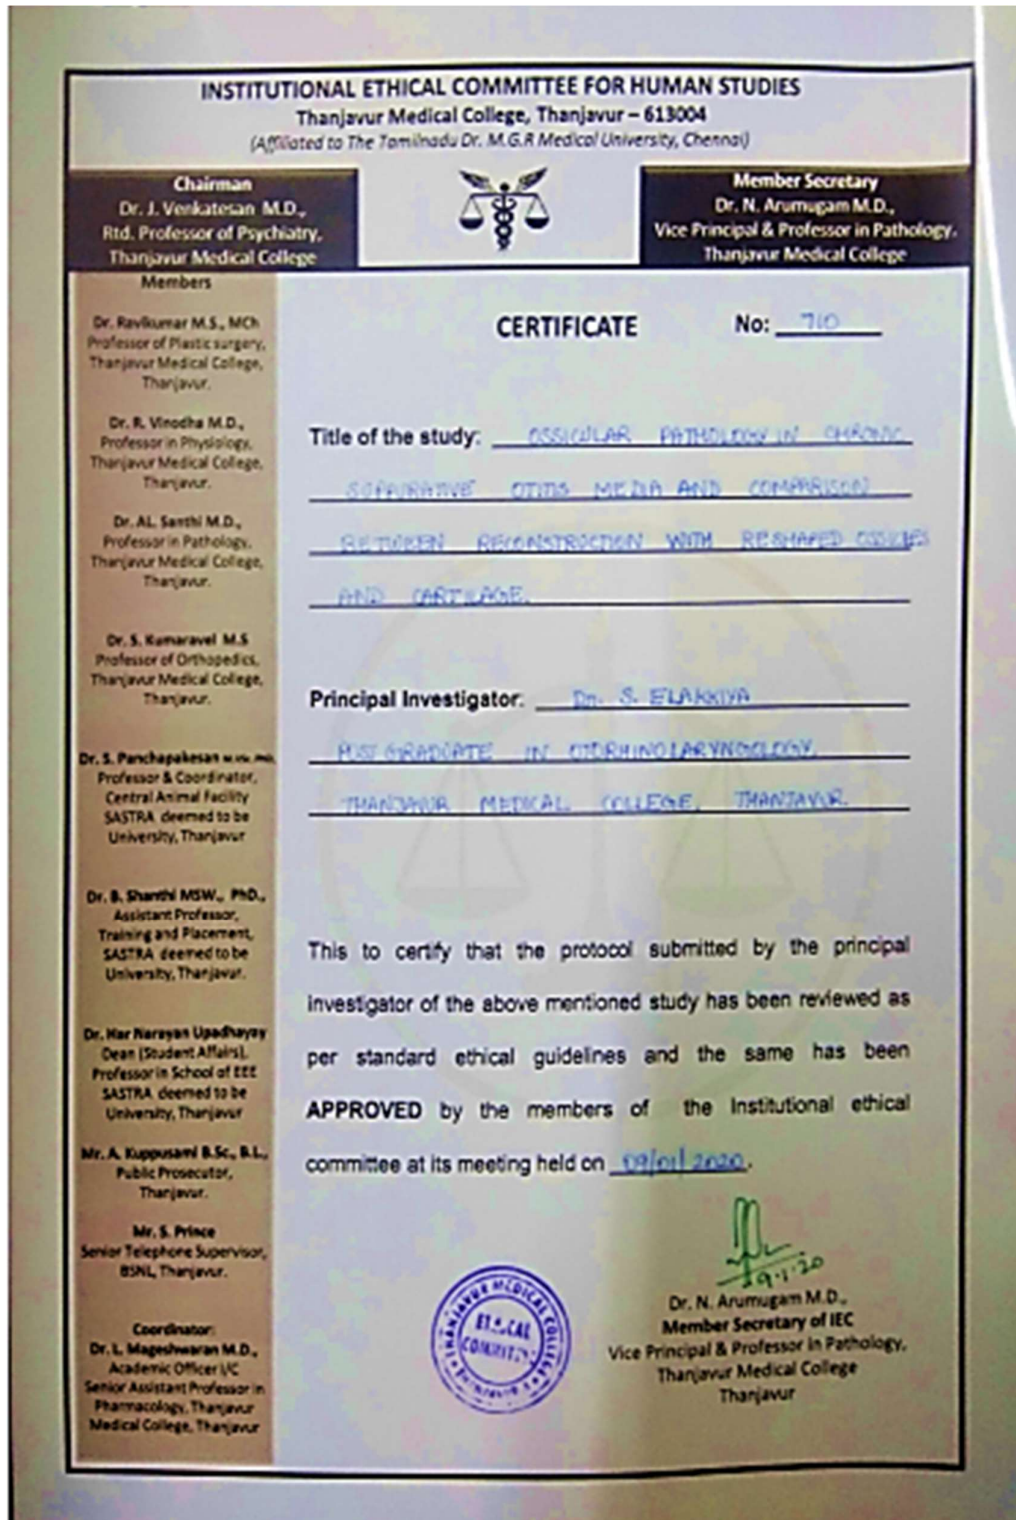 INSTITUTIONAL ETHICAL COMMITTEE FOR HUMAN STUDIES
Thanjavur Medical College, Thanjavur – 613004
(Affiliated to The Tamilnadu Dr. M.G.R Medical University, Chennai)
Chairman
Dr. J. Venkatesan M.D.,
Rtd. Professor of Psychiatry,
Thanjavur Medical College
Member Secretary
Dr. N. Arumugam M.D.,
Vice Principal & Professor in Pathology,
Thanjavur Medical College
Members
Dr. Ravikumar M.S., MCh
Professor of Plastic surgery,
Thanjavur Medical College,
Thanjavur.
Dr. R. Vinodha M.D.,
Professor in Physiology,
Thanjavur Medical College,
Thanjavur.
Dr. AL. Santhi M.D.,
Professor in Pathology,
Thanjavur Medical College,
Thanjavur.
Dr. S. Kumaravel M.S
Professor of Orthopedics,
Thanjavur Medical College,
Thanjavur.
Dr. S. Panchapakesan
Professor & Coordinator,
Central Animal Facility
SASTRA deemed to be
University, Thanjavur
Dr. B. Shanthi MSW., PhD.,
Assistant Professor,
Training and Placement,
SASTRA deemed to be
University, Thanjavur.
Dr. Har Narayan Upadhayay
Dean (Student Affairs),
Professor in School of EEE
SASTRA deemed to be
University, Thanjavur
Mr. A. Kuppusami B.Sc., B.L.,
Public Prosecutor,
Thanjavur.
Mr. S. Prince
Senior Telephone Supervisor,
BSNL, Thanjavur.
Coordinator:
Dr. L. Mageshwaran M.D.,
Academic Officer I/C
Senior Assistant Professor in
Pharmacology, Thanjavur
Medical College, Thanjavur
CERTIFICATE No: 710
Title of the study: OSSICULAR PATHOLOGY IN CHRONIC
SUPPURATIVE OTITIS MEDIA AND COMPARISON
BETWEEN RECONSTRUCTION WITH RESHAPED OSSICLES
AND CARTILAGE.
Principal Investigator: Dr. S. ELAKKIYA
POST GRADUATE IN OTORHINOLARYNGOLOGY,
THANJAVUR MEDICAL COLLEGE, THANJAVUR.
This to certify that the protocol submitted by the principal
investigator of the above mentioned study has been reviewed as
per standard ethical guidelines and the same has been
APPROVED by the members of the Institutional ethical
committee at its meeting held on 09/01/2020.
9-1-20
THANJAVUR MEDICAL COLLEGE
ETHICAL
COMMITTEE
Dr. N. Arumugam M.D.,
Member Secretary of IEC
Vice Principal & Professor in Pathology,
Thanjavur Medical College
Thanjavur